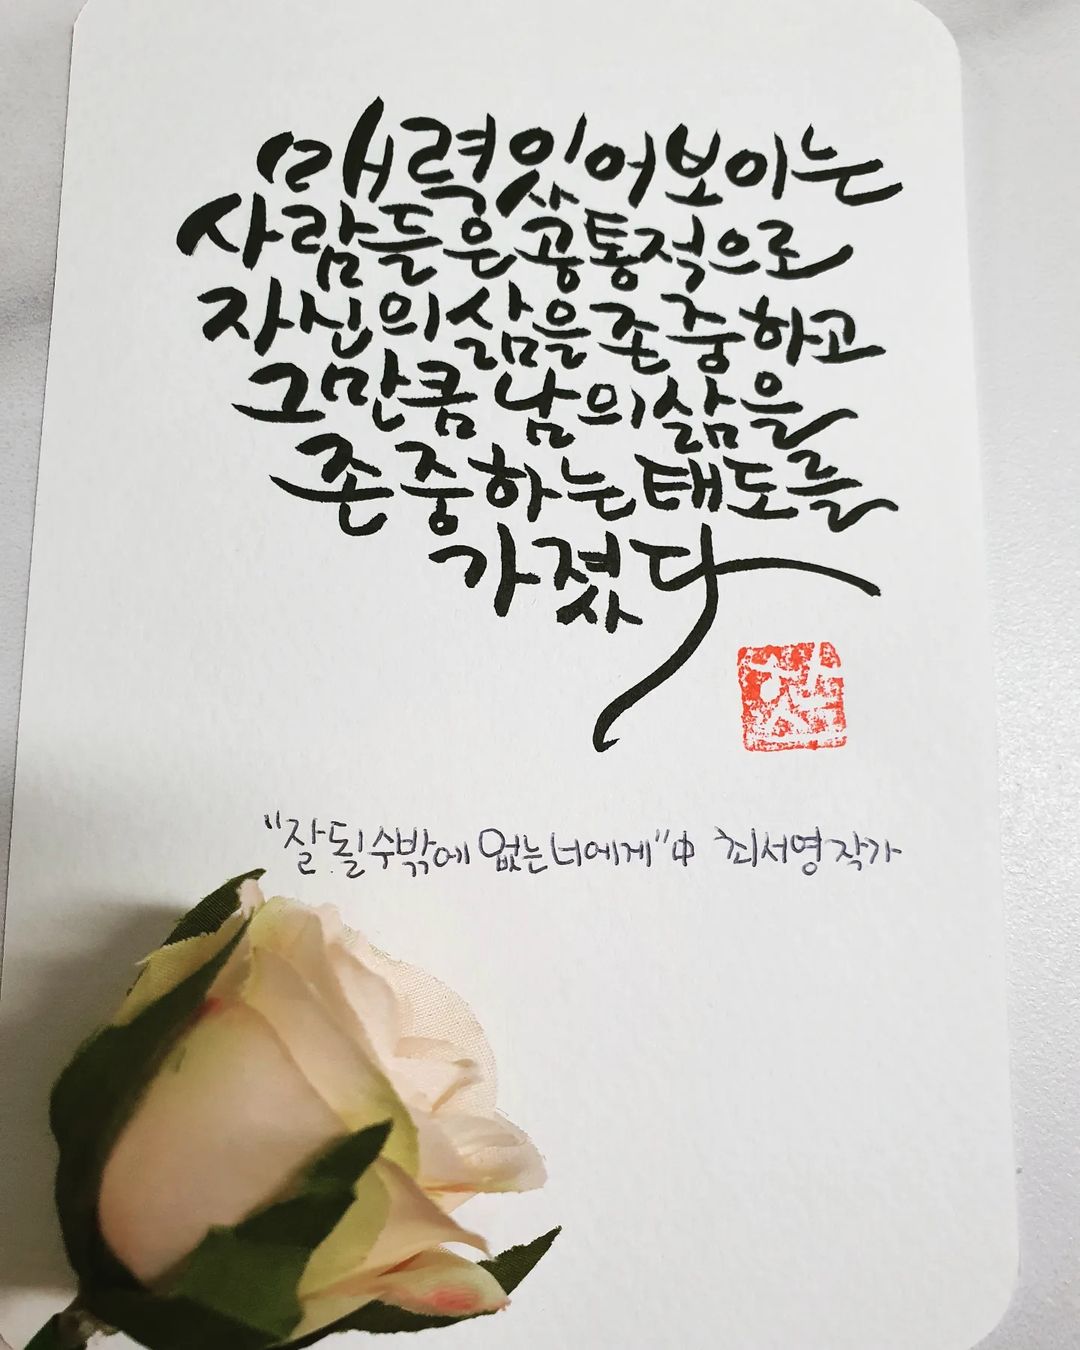 매력있어보이는
사람들은 공통적으로
자신의 삶을 존중하고
그만큼 남의 삶을
존중하는 태도를
가졌다
"잘될수밖에 없는너에게"中 최서영작가